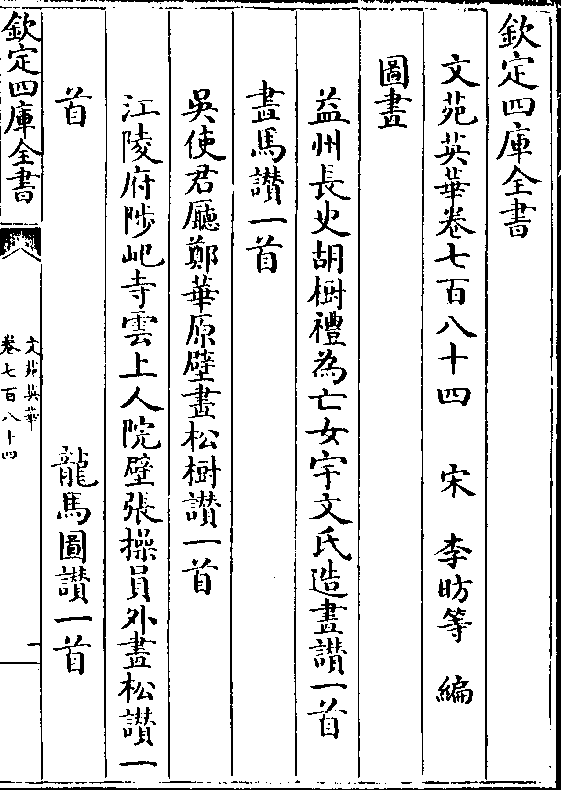 欽定四庫全書
文苑英華卷七百八十四　宋　李昉等　編
圖畫
益州長史胡樹禮為亡女宇文氏造畫讃一首
畫馬讃一首
吳使君廳鄭華原壁畫松樹讃一首
江陵府陟屺寺雲上人院壁張操員外畫松讃一
首　龍馬圖讃一首
欽定四庫全書
文苑英華
卷七百八十四
一